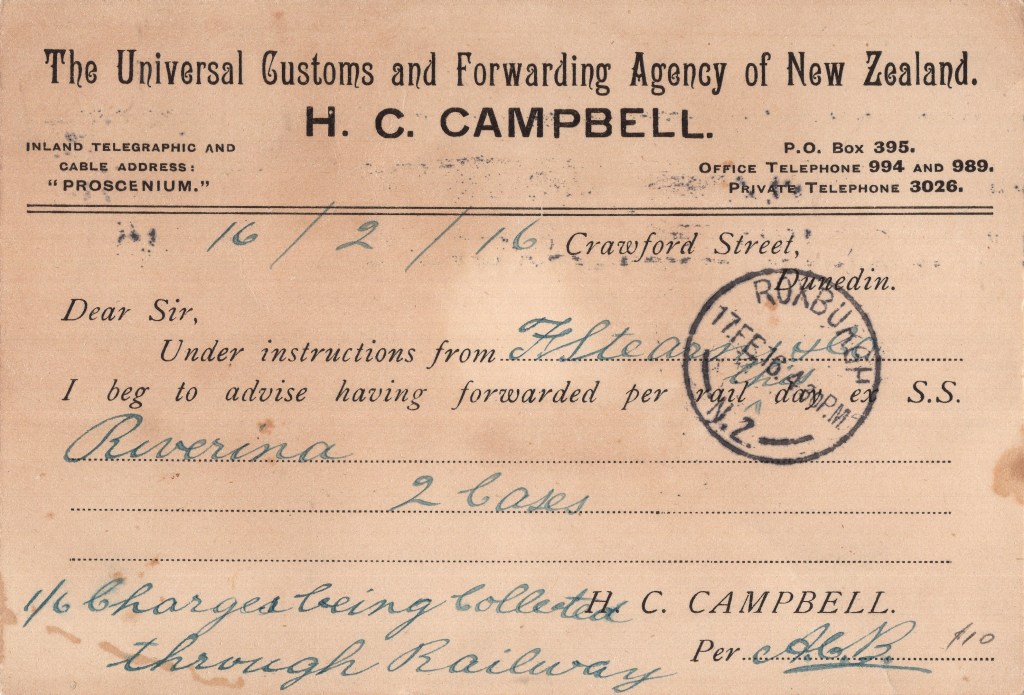 The Universal Customs and Forwarding Agency of New Zealand.
H. C. CAMPBELL.
INLAND TELEGRAPHIC AND
CABLE ADDRESS:
"PROSCENIUM."
P.O. Box 395.
OFFICE TELEPHONE 994 AND 989.
PRIVATE TELEPHONE 3026.
16 / 2 / 16 Crawford Street,
Dunedin.
Dear Sir,
Under instructions from & Co
I beg to advise having forwarded per rail this day ex S.S.
Riverina
2 Cases
1/6 Charges being Collected
through Railway
H. C. CAMPBELL.
Per
$10
ROXBURGH
17 FE 16 4 30 PM
N.Z.